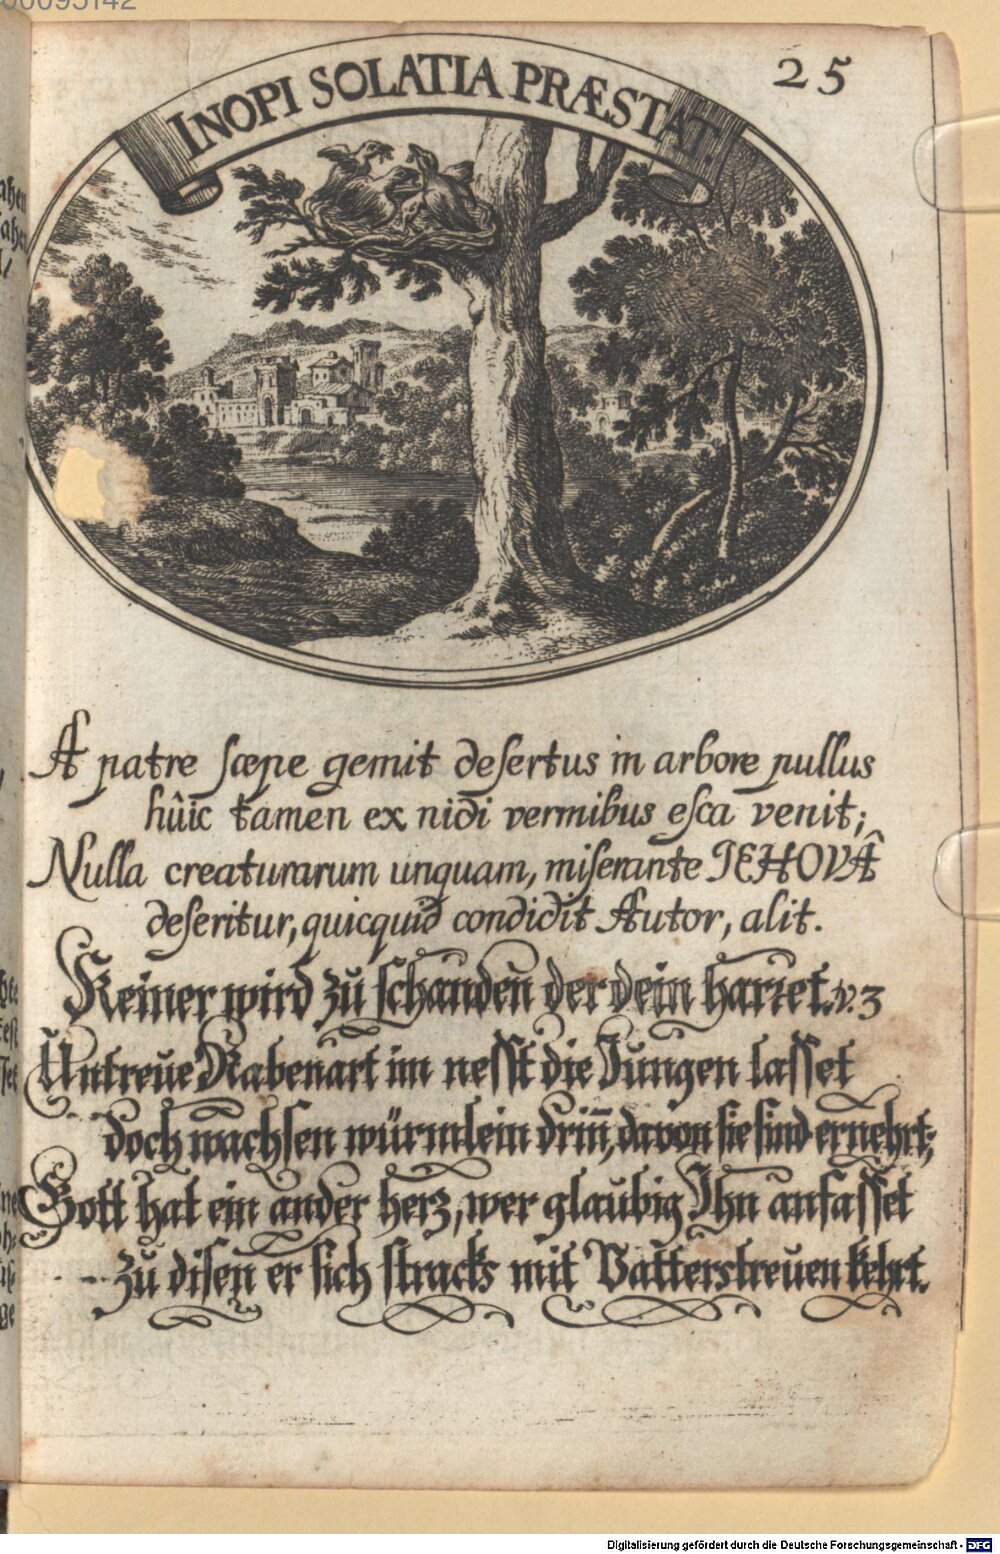 00095142
INOPI SOLATIA PRÆSTAT.
25
A patre sæpe gemit desertus in arbore pullus
hûic tamen ex nidi vermibus esca venit;
Nulla creaturarum unquam, miserante JEHOVÂ
deseritur, quicquid condidit Autor, alit.
Keiner wird zů schanden der dein harret. v. 3
Untreue Rabenart im nesst die Jungen lasset
doch wachsen würmlein drin̄, davon sie sind ernehrt;
Gott hat ein ander herz, wer glaubig Ihn anfasset
zů disen er sich stracks mit Vatterstreuen kehrt.
Digitalisierung gefördert durch die Deutsche Forschungsgemeinschaft - DFG